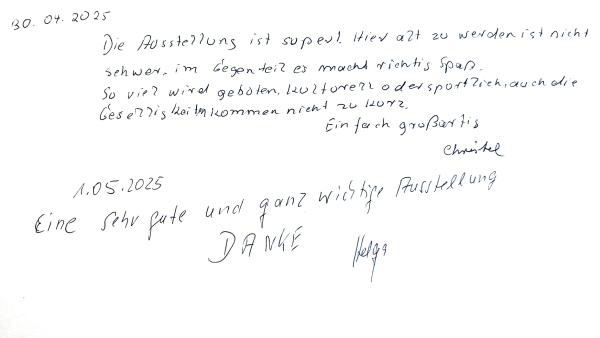 30.04.2025
Die Ausstellung ist super! Hier alt zu werden ist nicht
schwer, im Gegenteil es macht richtig Spaß.
So viel wird geboten, kulturell oder sportlich, auch die
Geselligkeiten kommen nicht zu kurz.
Einfach großartig
Christel
1.05.2025
Eine sehr gute und ganz wichtige Ausstellung
DANKE Helga